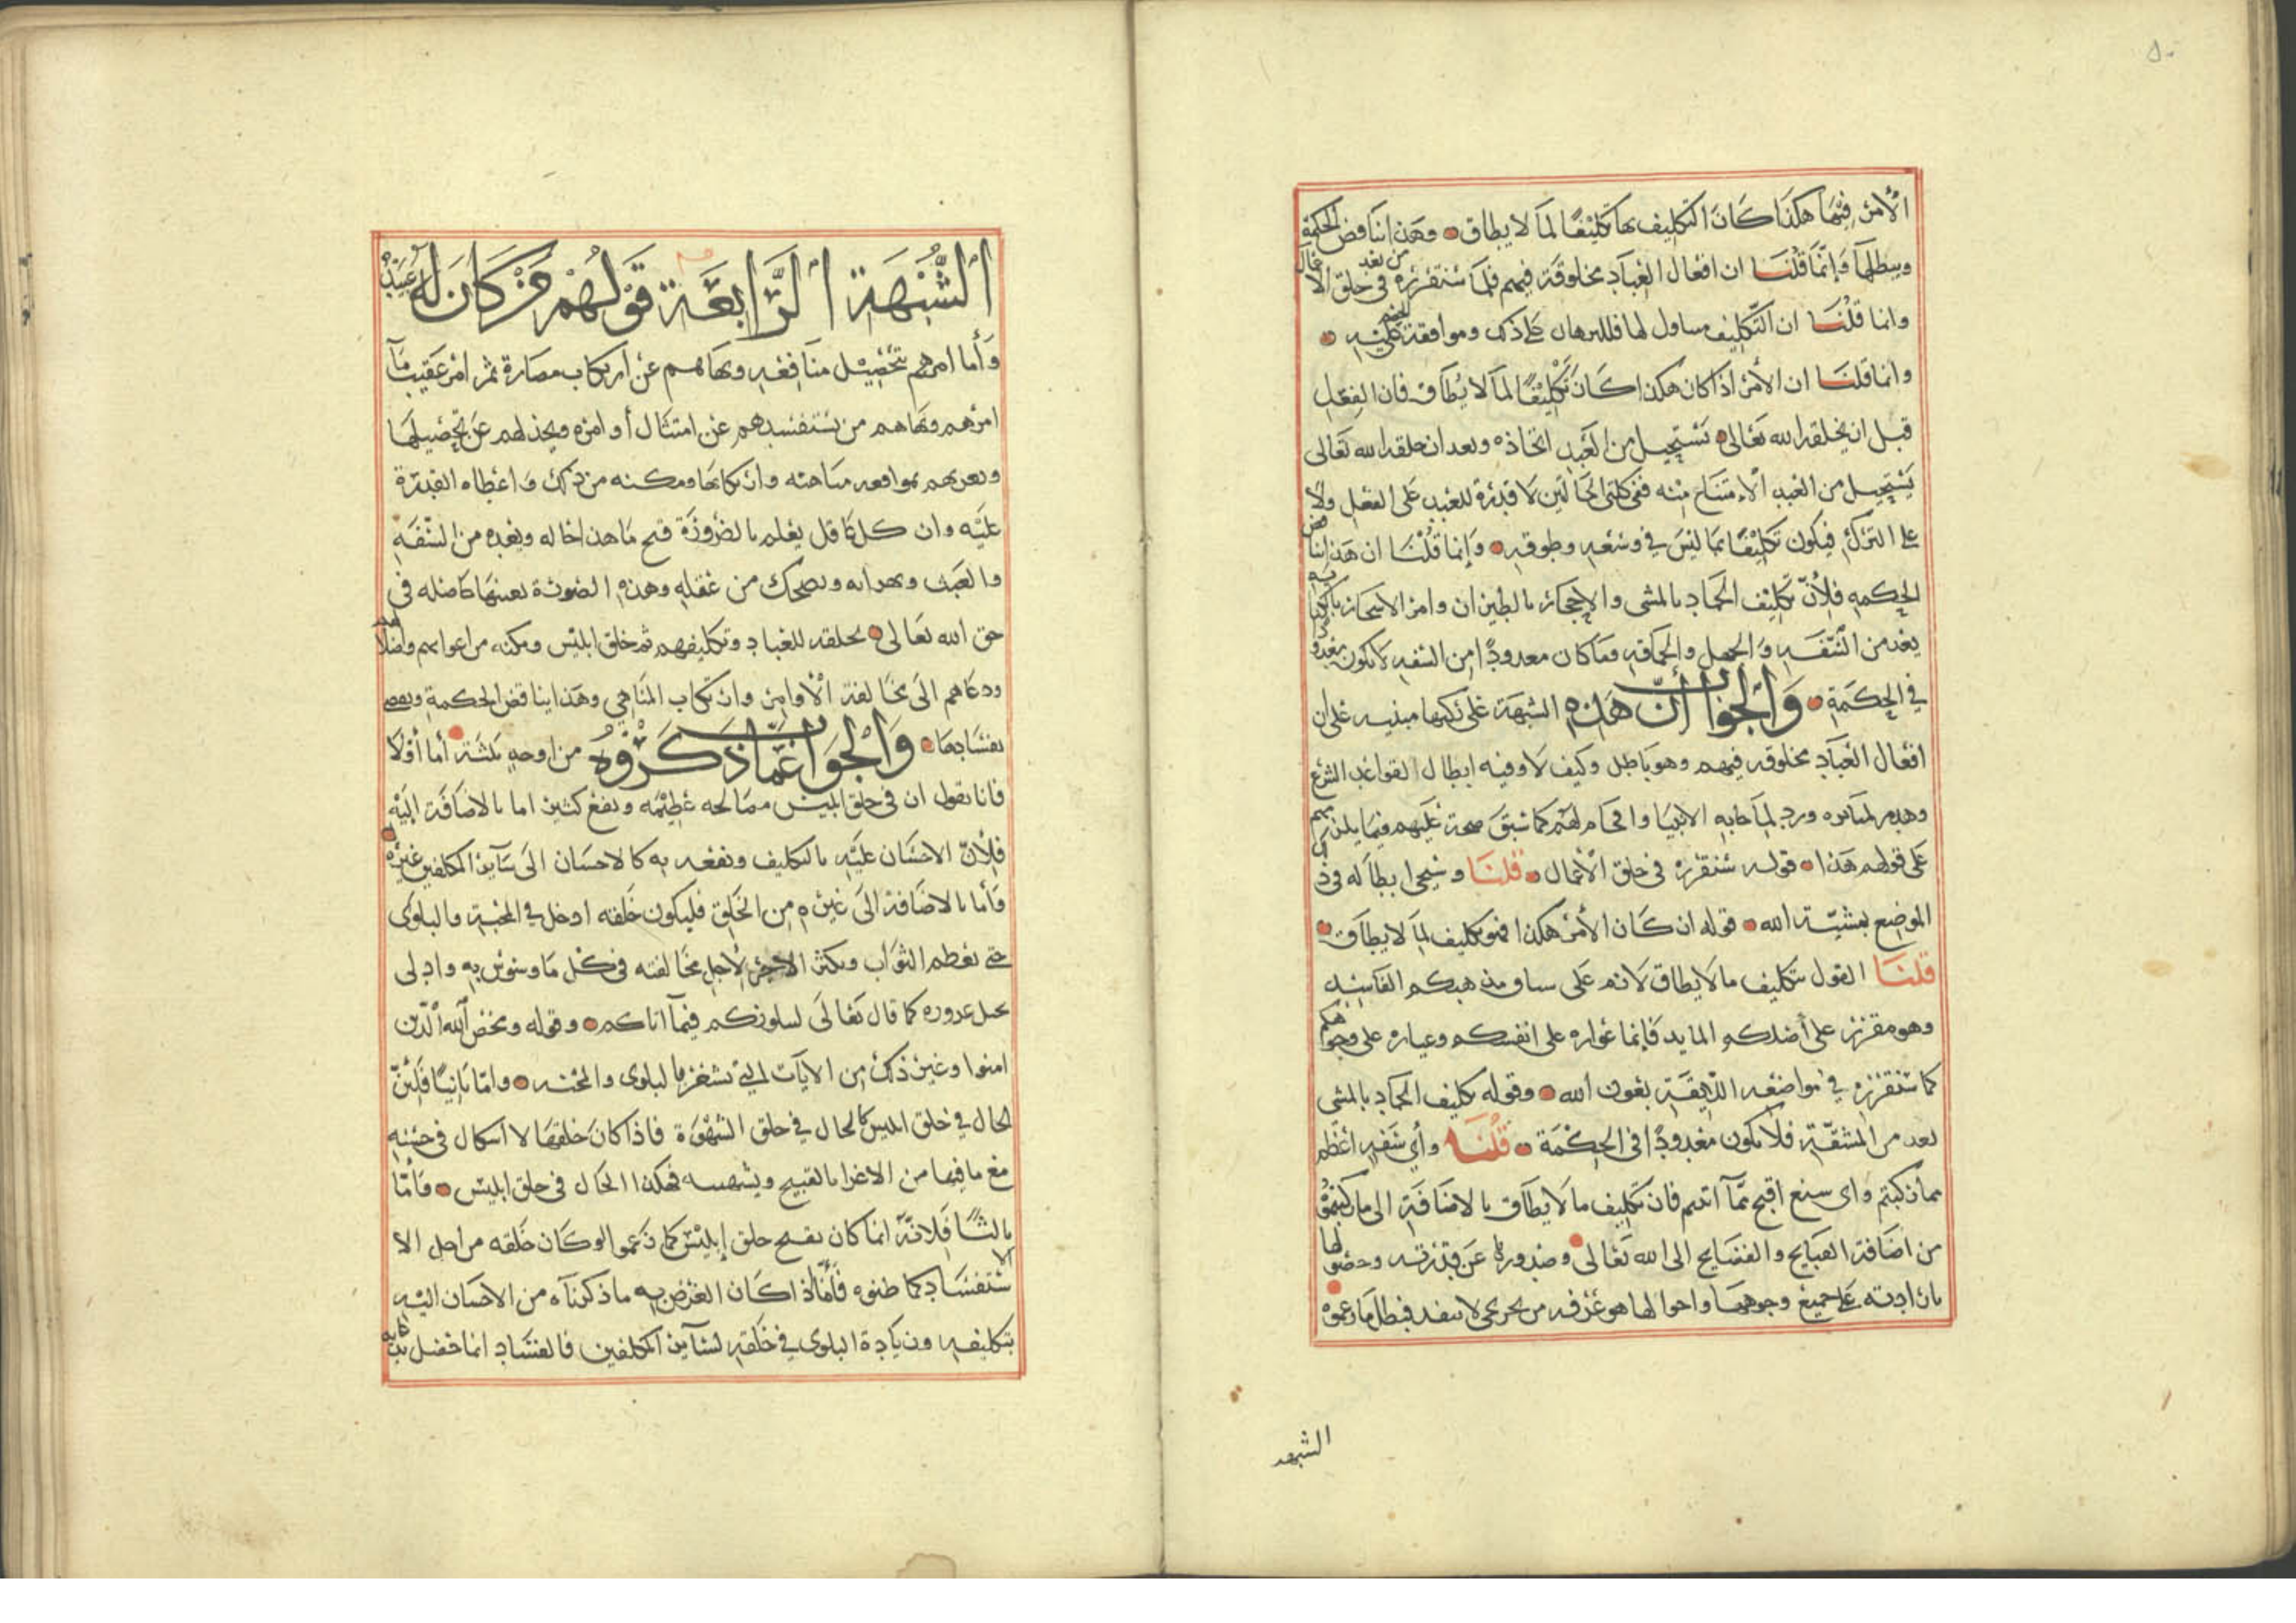 الأمر فيها هكذا كان التكليف بها تكليفًا لما لا يطاق وهذا يناقض الحكمة
ويبطلها وإنما قلنا ان افعال العباد مخلوقة فيهم فلما سنقرره من بعد في خلق الا فعال
وانما قلنا ان التكليف متناول لها فللبرهان على ذلك وموافقة الخصم عليه
وانما قلنا ان الأمر اذا كان هكذا كان تكليفًا لما لا يطاق فان الفعل
قبل ان يخلقه الله تعالى يستحيل من العبد اتخاذه وبعد ان خلقه الله تعالى
يستحيل من العبد الامتناع منه ففي كلتي الحالتين لا قدرة للعبد على الفعل ولا
على الترك فيكون تكليفًا بما ليس في وسعه وطوقه وإنما قلنا ان هذا يناقض
الحكمه فلأن تكليف الجماد بالمشى والاحجار بالطيران وامر الاشجار بالكتابة
يعد من السفه والجهل والحماقه وما كان معدودًا من السفه لا يكون معدودًا
في الحكمة والجواب أن هذه الشبهة على ركتها مبنيه على ان
افعال العباد مخلوقه فيهم وهو باطل وكيف لا وفيه ابطال لقواعد الشرع
وهدم لمنائره ورد لما جا به الانبيا وافحام لهم كما سبق صحة عليهم فيما يلزمهم
على قولهم هذا قوله سنقرره في خلق الأعمال قلنا وسيجي ابطاله في ذلك
الموضع بمشيّة الله قوله ان كان الأمر هكذا فهو تكليف لما لا يطاق
قلنا القول بتكليف ما لا يطاق لازم على مساق مذهبكم الفاسد
وهو مقرر على أصلكم المايد فإنما عواره على انفسكم وعياره على وجوهكم
كما سنقرره في مواضعه اللايقة بعون الله وقوله تكليف الجماد بالمشى
يعد من السفه فلا يكون معدودًا في الحكمة قلنا وأي سفه اعظم
مما ركبتم واي سنع اقبح مما أتيتم فان تكليف ما لا يطاق بالاضافة الى ما ركبتموه
من اضافة القبايح والفضايح الى الله تعالى وصدورها عن قدرته وحصولها
بارادته على جميع وجوهها واحوالها هو غرفه من بحر لجى لا ينفد فبطل ما زعموه
الشبهه
الشبهة الرابعة قولهم من كان له عبيد
وأما امرهم بتحصيل منافعه ونهاهم عن ارتكاب مضاره ثم امر عقيب ما
امرهم ونهاهم من يستفسدهم عن امتثال أوامره ويخذلهم عن تحصيلها
ويغريهم بمواقعه مناهيه وارتكابها ومكنه من ذلك واعطاه القدرة
عليه وان كل عاقل يعلم بالضرورة قبح ما هذا حاله ويعده من السفه
والعبث ويهزا به ويضحك من عقله وهذه الصورة بعينها حاصله في
حق الله تعالى بخلقه للعباد وتكليفهم ثم خلق ابليس ومكنه من اغوائهم واضلالهم
ودعاهم الى مخالفة الأوامر وارتكاب المناهي وهذا يناقض الحكمة ويقضى
بفسادها والجواب عما ذكروه من اوجه ثلثة أما أولا
فانا نقول ان في خلق ابليس مصالحه عظيمه ونفع كثير اما بالاضافة اليه
فلأن الاحسان عليه بالتكليف ونفعه به كالاحسان الى سآئر المكلفين غيره
وأما بالاضافة الى غيره من الخلق فليكون خلقه ادخل في المحنة والبلوى
حتى يعظم الثواب ويكثر الاجر لأجل مخالفته في كل ما وسوس به وادلى
بحبل غروره كما قال تعالى ليبلوكم فيمآ اتاكم وقوله وليمحص الله الذين
امنوا وغير ذلك من الآيات التي تشعر بالبلوى والمحنه واما ثانيًا فلئن
الحال في خلق ابليس كالحال في خلق الشهوة فاذا كان خلقها لا اشكال في حسنه
مع ما فيها من الاغرا بالقبيح وتشهيه فهكذا الحال في خلق ابليس وأما
ثالثًا فلانه انما كان يقبح خلق إبليس كما زعموا لو كان خلقه من اجل الا
ستفساد كما ظنوه فأما اذا كان الغرض به ما ذكرناه من الاحسان اليه
بتكليفه وزيادة البلوى في خلقه لسآئر المكلفين فالفساد انما حصل